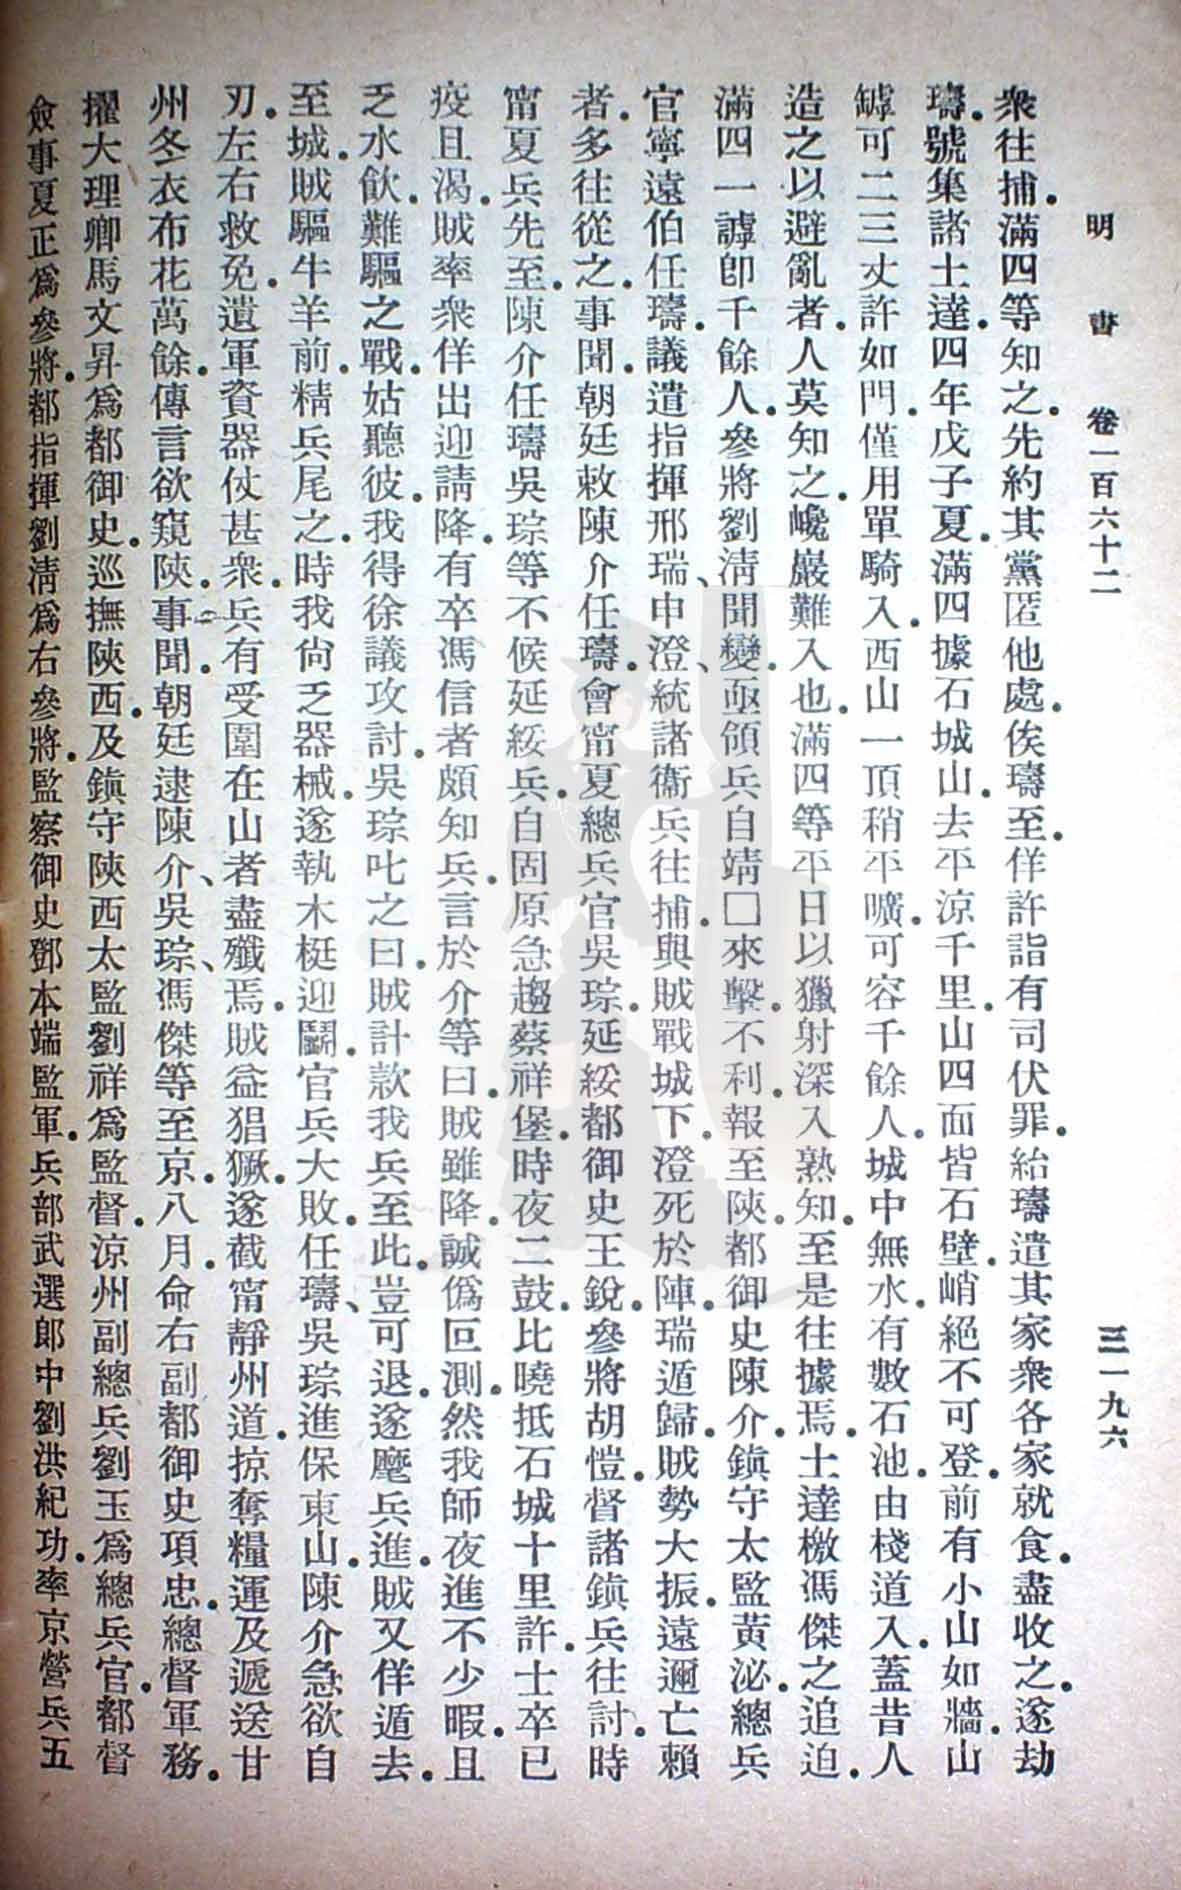 明書　卷一百六十二　三一九六
衆往捕．滿四等知之．先約其黨匿他處．俟璹至．佯許詣有司伏罪．紿璹遣其家衆各家就食．盡收之．遂劫
璹．號集諸土達．四年戊子夏．滿四據石城山．去平涼千里．山四面皆石壁．峭絕不可登．前有小山如牆．山
罅可二三丈許如門．僅用單騎入．西山一頂稍平曠．可容千餘人．城中無水．有數石池．由棧道入．蓋昔人
造之以避亂者．人莫知之．巉巖難入也．滿四等平日以獵射深入熟知．至是往據焉．土達檄馮傑之追迫．
滿四一謼卽千餘人．參將劉淸聞變．亟領兵自靖□來擊．不利．報至陝．都御史陳介．鎭守太監黃泌．總兵
官寧遠伯任璹．議遣指揮邢瑞、申澄、統諸衞兵往捕．與賊戰城下．澄死於陣．瑞遁歸．賊勢大振．遠邇亡賴
者．多往從之．事聞．朝廷敕陳介任璹．會甯夏總兵官吳琮．延綏都御史王銳．參將胡愷．督諸鎭兵往討．時
甯夏兵先至．陳介任璹吳琮等不候延綏兵．自固原急趨蔡祥堡．時夜二鼓．比曉抵石城十里許．士卒已
疫且渴．賊率衆佯出迎請降．有卒馮信者頗知兵．言於介等曰．賊雖降．誠僞叵測．然我師夜進不少暇．且
乏水飮．難驅之戰．姑聽彼．我得徐議攻討．吳琮叱之曰．賊計款我兵至此．豈可退．遂麾兵進．賊又佯遁去．
至城．賊驅牛羊前．精兵尾之．時我尙乏器械．遂執木梃迎鬭．官兵大敗．任璹、吳琮進保東山．陳介急欲自
刃．左右救免．遺軍資器仗甚衆．兵有受圍在山者盡殲焉．賊益猖獗．遂截甯靜州道．掠奪糧運及遞送甘
州冬衣布花萬餘．傳言欲窺陝．事聞．朝廷逮陳介、吳琮、馮傑等至京．八月．命右副都御史項忠．總督軍務．
擢大理卿馬文昇爲都御史．巡撫陝西．及鎭守陝西太監劉祥爲監督．涼州副總兵劉玉爲總兵官．都督
僉事夏正爲參將．都指揮劉淸爲右參將．監察御史鄧本端監軍．兵部武選郞中劉洪紀功．率京營兵五